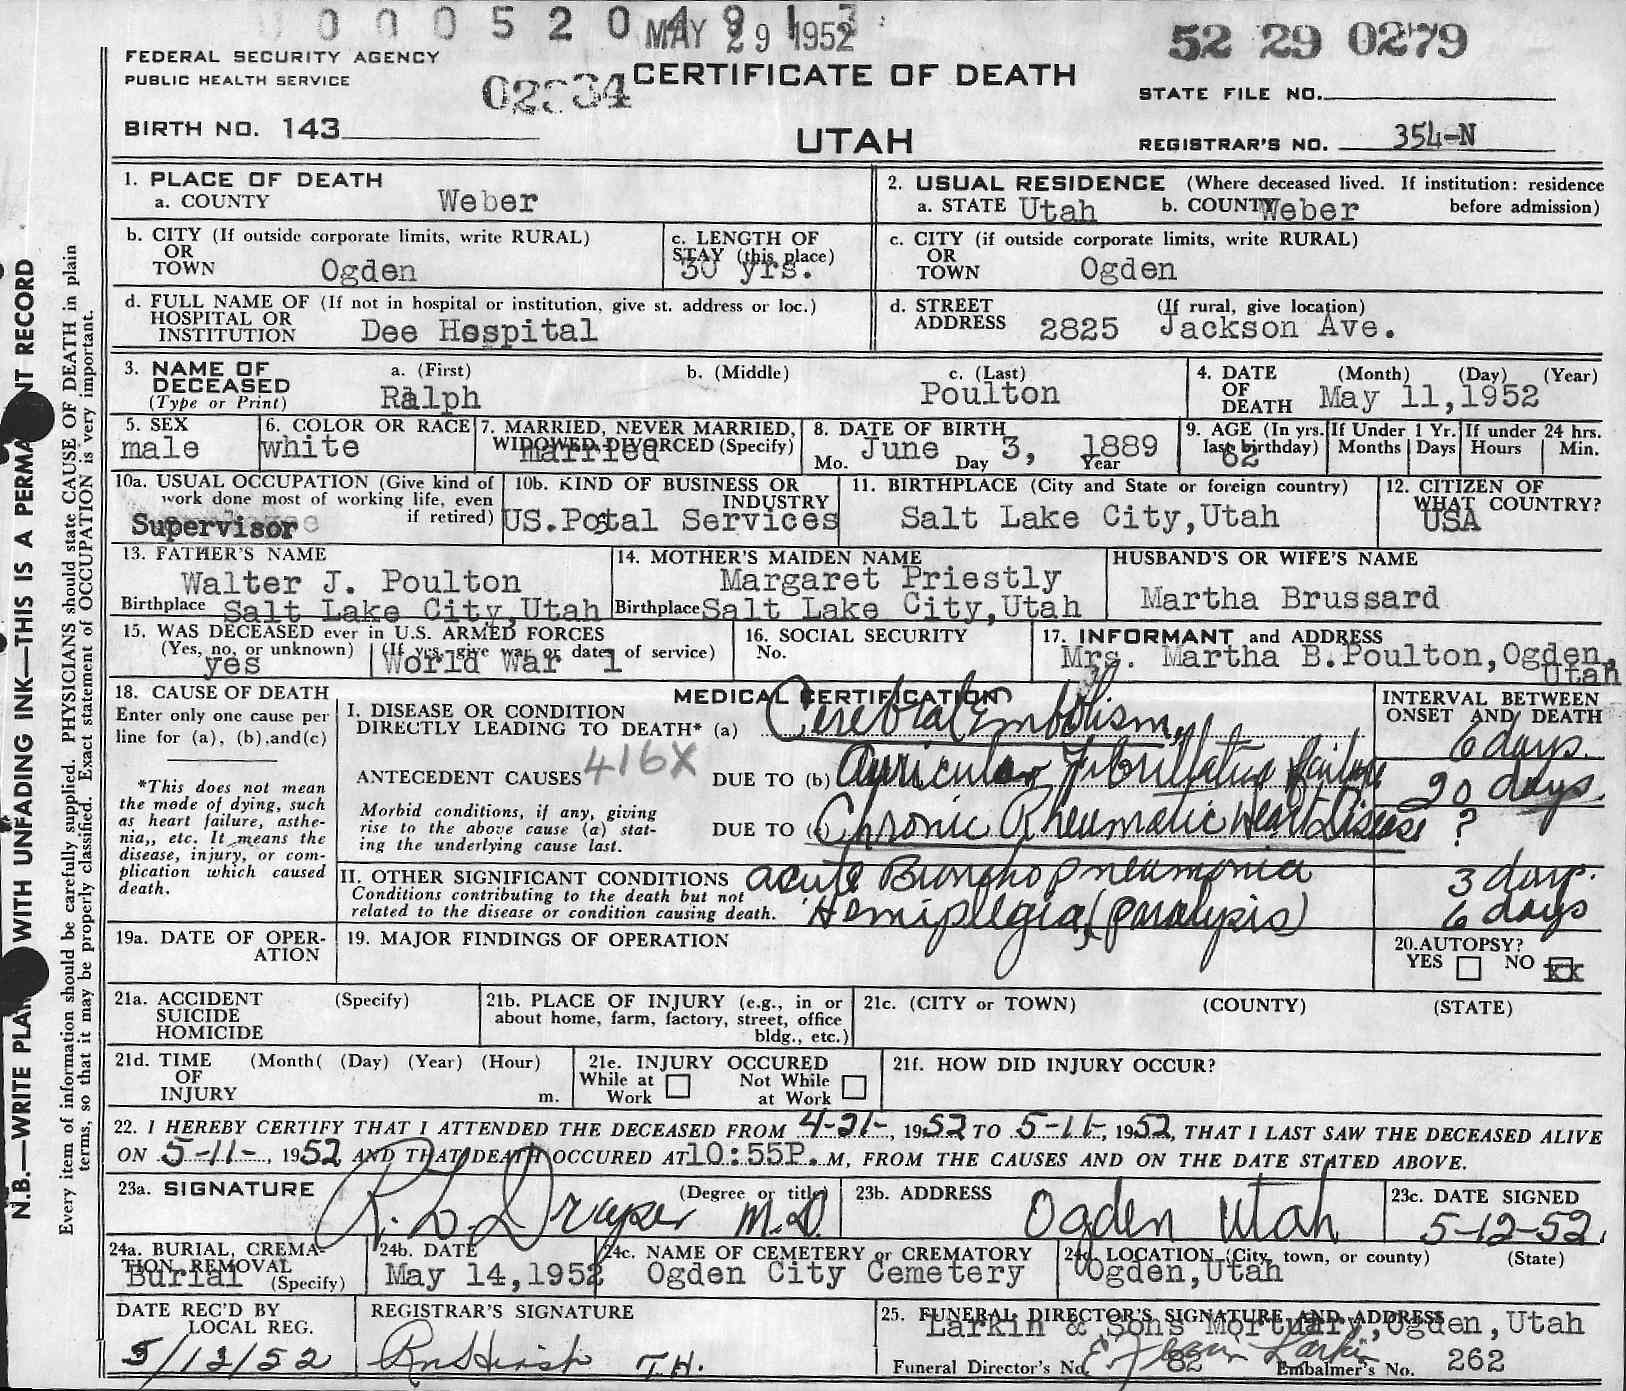 000520
MAY 29 1952
52 29 0279
FEDERAL SECURITY AGENCY
PUBLIC HEALTH SERVICE
CERTIFICATE OF DEATH
STATE FILE NO.
BIRTH NO. 143
UTAH
REGISTRAR'S NO. 354-N
1. PLACE OF DEATH
a. COUNTY Weber
2. USUAL RESIDENCE (Where deceased lived. If institution: residence before admission)
a. STATE Utah b. COUNTY Weber
b. CITY (If outside corporate limits, write RURAL)
OR
TOWN Ogden
c. LENGTH OF
STAY (this place)
30 yrs.
c. CITY (if outside corporate limits, write RURAL)
OR
TOWN Ogden
d. FULL NAME OF (If not in hospital or institution, give st. address or loc.)
HOSPITAL OR
INSTITUTION Dee Hospital
d. STREET (If rural, give location)
ADDRESS 2825 Jackson Ave.
3. NAME OF
DECEASED
(Type or Print)
a. (First) b. (Middle) c. (Last)
Ralph Poulton
4. DATE (Month) (Day) (Year)
OF
DEATH May 11,1952
5. SEX
male
6. COLOR OR RACE
white
7. MARRIED, NEVER MARRIED,
WIDOWED, DIVORCED (Specify)
married
8. DATE OF BIRTH
Mo. June Day 3, Year 1889
9. AGE (In yrs. last birthday)
62
If Under 1 Yr.
Months Days
If under 24 hrs.
Hours Min.
10a. USUAL OCCUPATION (Give kind of
work done most of working life, even
if retired)
Supervisor
10b. KIND OF BUSINESS OR
INDUSTRY
US.Postal Services
11. BIRTHPLACE (City and State or foreign country)
Salt Lake City,Utah
12. CITIZEN OF
WHAT COUNTRY?
USA
13. FATHER'S NAME
Walter J. Poulton
Birthplace Salt Lake City,Utah
14. MOTHER'S MAIDEN NAME
Margaret Priestly
Birthplace Salt Lake City,Utah
HUSBAND'S OR WIFE'S NAME
Martha Brussard
15. WAS DECEASED ever in U.S. ARMED FORCES
(Yes, no, or unknown) (If yes, give war or dates of service)
yes World War 1
16. SOCIAL SECURITY
No.
17. INFORMANT and ADDRESS
Mrs. Martha B.Poulton,Ogden,
Utah
18. CAUSE OF DEATH
Enter only one cause per
line for (a), (b),and(c)
*This does not mean
the mode of dying, such
as heart failure, asthe-
nia,, etc. It means the
disease, injury, or com-
plication which caused
death.
MEDICAL CERTIFICATION
I. DISEASE OR CONDITION
DIRECTLY LEADING TO DEATH* (a) Cerebral Embolism,
INTERVAL BETWEEN
ONSET AND DEATH
6 days.
ANTECEDENT CAUSES 416X
DUE TO (b) Auricular Fibrillation failure 20 days
Morbid conditions, if any, giving
rise to the above cause (a) stat-
ing the underlying cause last.
DUE TO (c) Chronic Rheumatic Heart Disease ?
II. OTHER SIGNIFICANT CONDITIONS
Conditions contributing to the death but not
related to the disease or condition causing death.
acute Bronchopneumonia 3 days.
Hemiplegia (paralysis) 6 days
19a. DATE OF OPER-
ATION
19. MAJOR FINDINGS OF OPERATION
20.AUTOPSY?
YES NO XX
21a. ACCIDENT (Specify)
SUICIDE
HOMICIDE
21b. PLACE OF INJURY (e.g., in or
about home, farm, factory, street, office
bldg., etc.)
21c. (CITY or TOWN) (COUNTY) (STATE)
21d. TIME (Month( (Day) (Year) (Hour)
OF
INJURY m.
21e. INJURY OCCURED
While at Work Not While at Work
21f. HOW DID INJURY OCCUR?
22. I HEREBY CERTIFY THAT I ATTENDED THE DECEASED FROM 4-21-, 1952 TO 5-11-, 1952, THAT I LAST SAW THE DECEASED ALIVE
ON 5-11-, 1952 AND THAT DEATH OCCURED AT 10:55P. M, FROM THE CAUSES AND ON THE DATE STATED ABOVE.
23a. SIGNATURE (Degree or title)
R. L. Draper M.D.
23b. ADDRESS
Ogden Utah
23c. DATE SIGNED
5-12-52
24a. BURIAL, CREMA-
TION, REMOVAL
(Specify)
Burial
24b. DATE
May 14,1952
24c. NAME OF CEMETERY or CREMATORY
Ogden City Cemetery
24d. LOCATION (City, town, or county) (State)
Ogden,Utah
DATE REC'D BY
LOCAL REG.
5/13/52
REGISTRAR'S SIGNATURE
T.H.
25. FUNERAL DIRECTOR'S SIGNATURE AND ADDRESS
Larkin & Sons Mortuary,Ogden,Utah
Funeral Director's No. 82 Larkin Embalmer's No. 262
N.B.—WRITE PLAINLY WITH UNFADING INK—THIS IS A PERMANENT RECORD
Every item of information should be carefully supplied. PHYSICIANS should state CAUSE OF DEATH in plain
terms, so that it may be properly classified. Exact statement of OCCUPATION is very important.